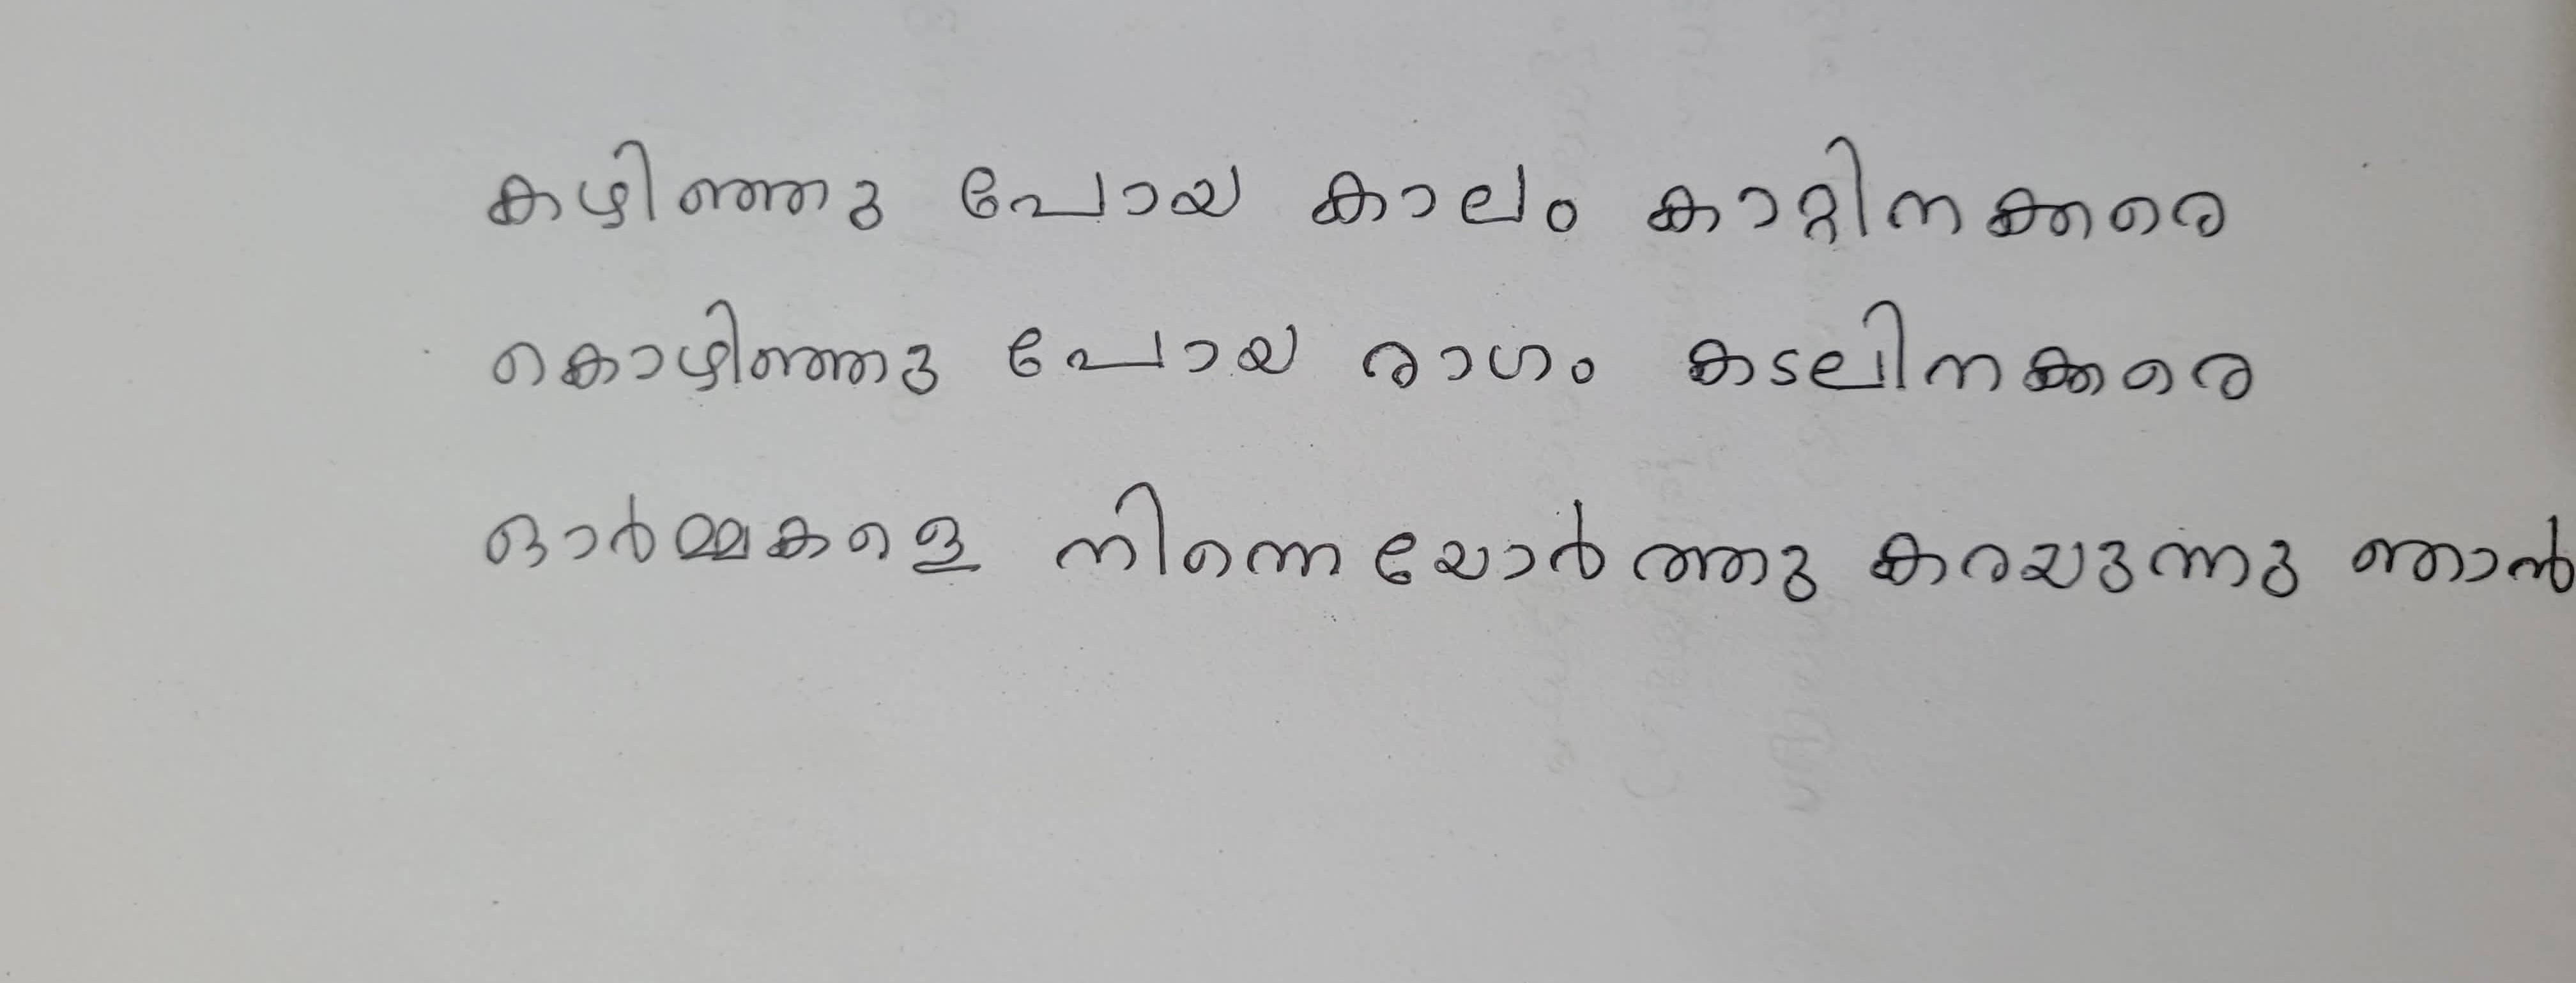 കഴിഞ്ഞു പോയ കാലം കാറ്റിനക്കരെ
കൊഴിഞ്ഞു പോയ രാഗം കടലിനക്കരെ
ഓർമ്മകളെ നിന്നെയോർത്തു കരയുന്നു ഞാൻ